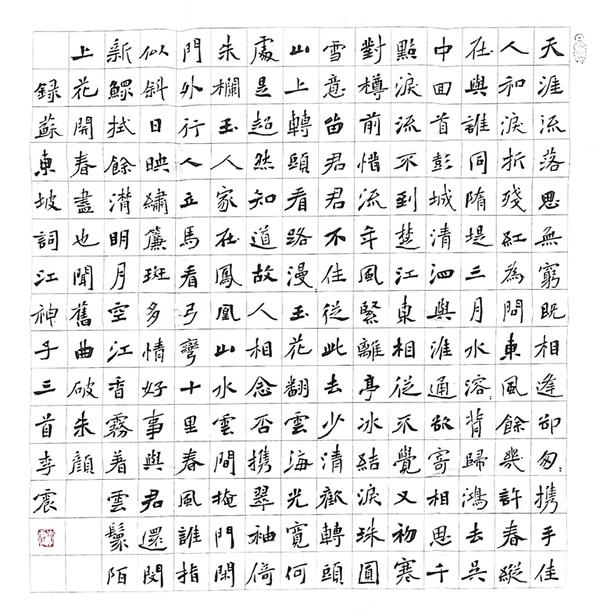 天涯流落思無窮既相逢卻匆〻携手佳
人和淚折殘紅為問東風餘幾許春縱
在與誰同隋堤三月水溶〻背歸鴻去吳
中回首彭城清泗與淮通欲寄相思千
點淚流不到楚江東相從不覺又初寒
對樽前惜流年風緊離亭冰結淚珠圓
雪意留君君不住從此去少清歡轉頭
山上轉頭看路漫〻玉花翻雲海光寬何
處是超然知道故人相念否携翠袖倚
朱欄玉人家在鳳凰山水雲間掩門閑
門外行人立馬看弓彎十里春風誰指
似斜日映繡簾斑多情好事與君還閔
新鰥拭餘潸明月空江香霧着雲鬟陌
上花開春盡也聞舊曲破朱顏
錄蘇東坡詞江神子三首李震